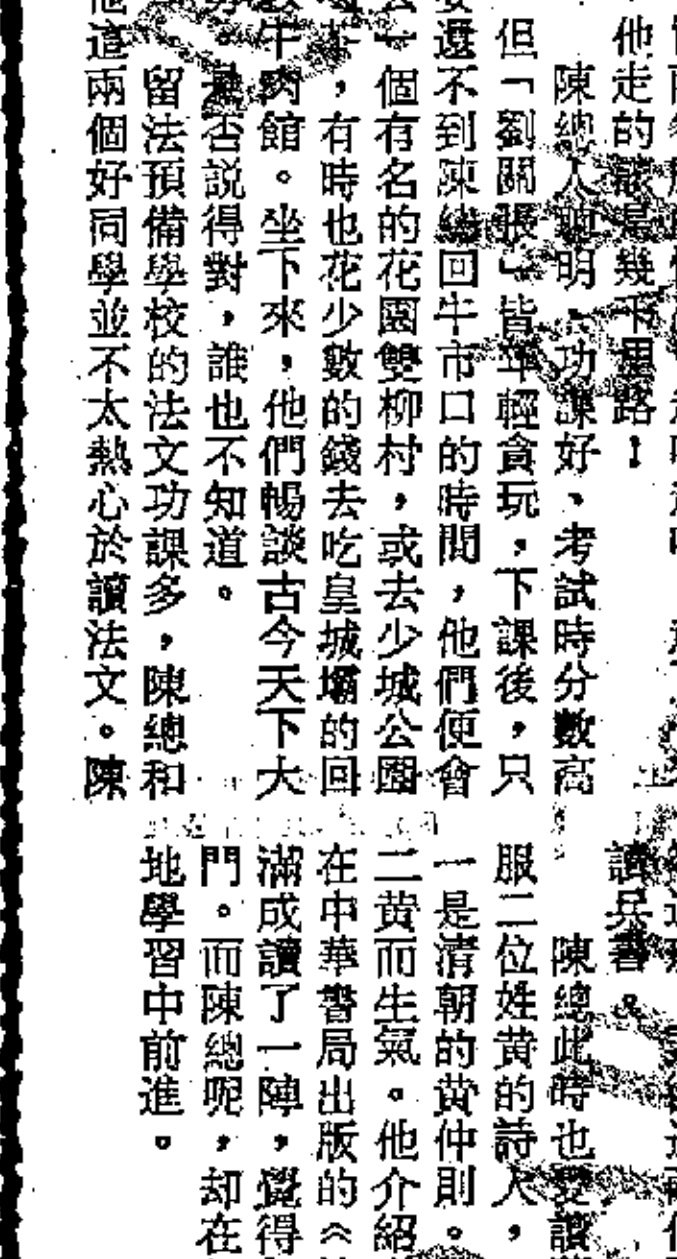 他走的
陳總人聰明，功課好，考試時分數高
但「劉關張」皆年輕貪玩，下課後，只
還不到陳總回牛市口的時間，他們便會
一個有名的花園雙柳村，或去少城公園
，有時也花少數的錢去吃皇城壩的回
牛肉館。坐下來，他們暢談古今天下大
是否説得對，誰也不知道。
留法預備學校的法文功課多，陳總和
他這兩個好同學並不太熱心於讀法文。陳
讀兵書。
陳總此時也愛讀
服二位姓黄的詩人，
一是清朝的黄仲則。
二黄而生氣。他介紹
在中華書局出版的《
滿成讀了一陣，覺得
門。而陳總呢，却在
地學習中前進。